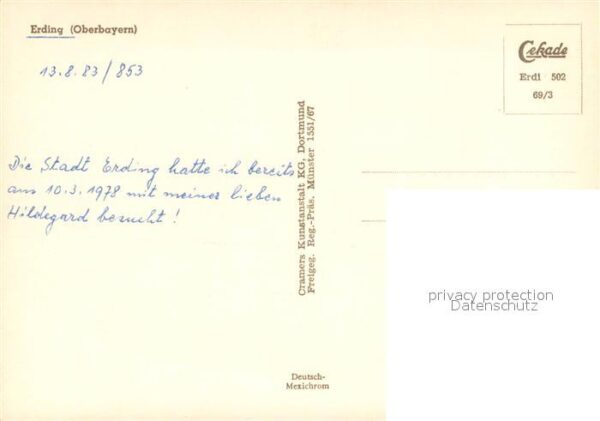 Erding (Oberbayern)
13.8.83/853
Cekade
Erdi 502
69/3
Die Stadt Erding hatte ich bereits
am 10.3.1978 mit meiner lieben
Hildegard besucht!
Cramers Kunstanstalt KG, Dortmund
Freigeg. Reg.-Präs. Münster 1551/67
privacy protection
Datenschutz
Deutsch-
Mexichrom